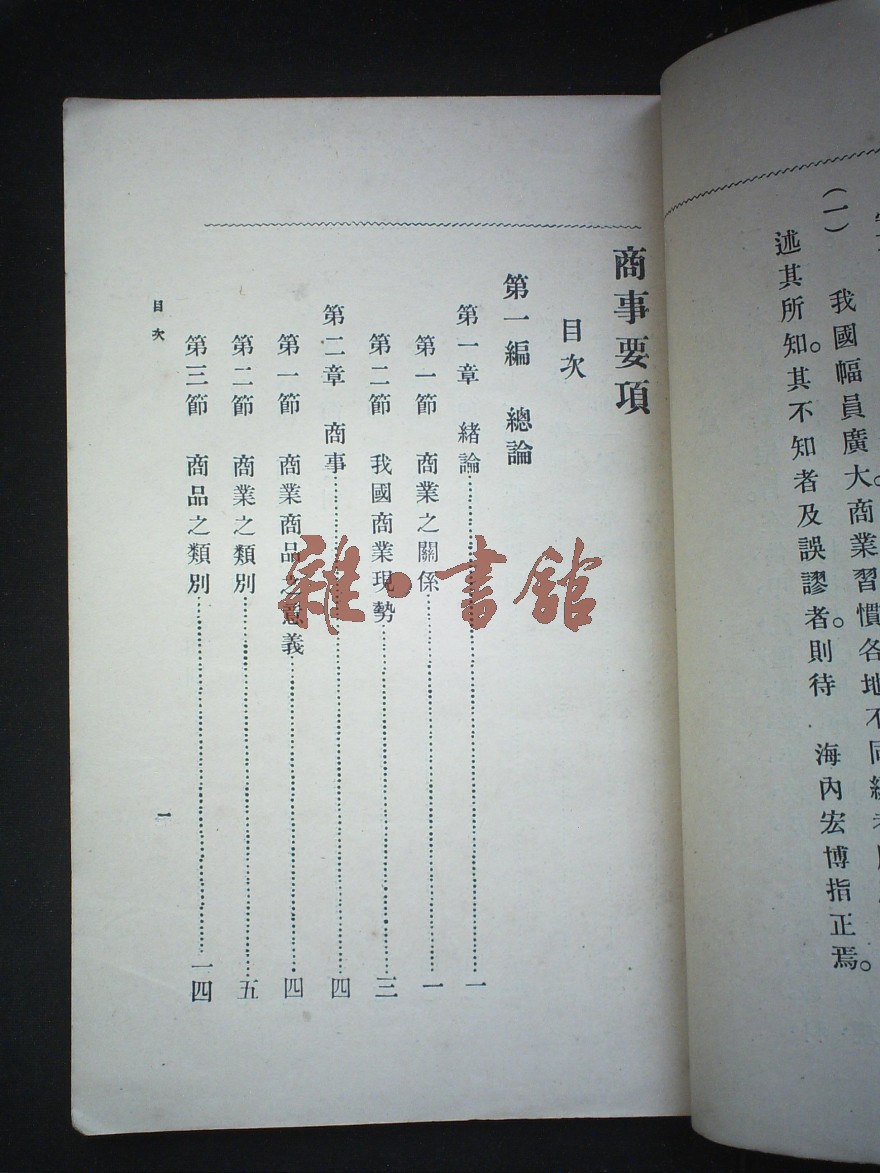 (一) 我國幅員廣大。商業習慣各地不同
述其所知。其不知者及誤謬者。則待 海內宏博指正焉。
商事要項
目次
第一編 總論
第一章 緒論……一
第一節 商業之關係……一
第二節 我國商業現勢……三
第二章 商事……四
第一節 商業商品之意義……四
第二節 商業之類別……五
第三節 商品之類別……一四
目次
一
雜·書館